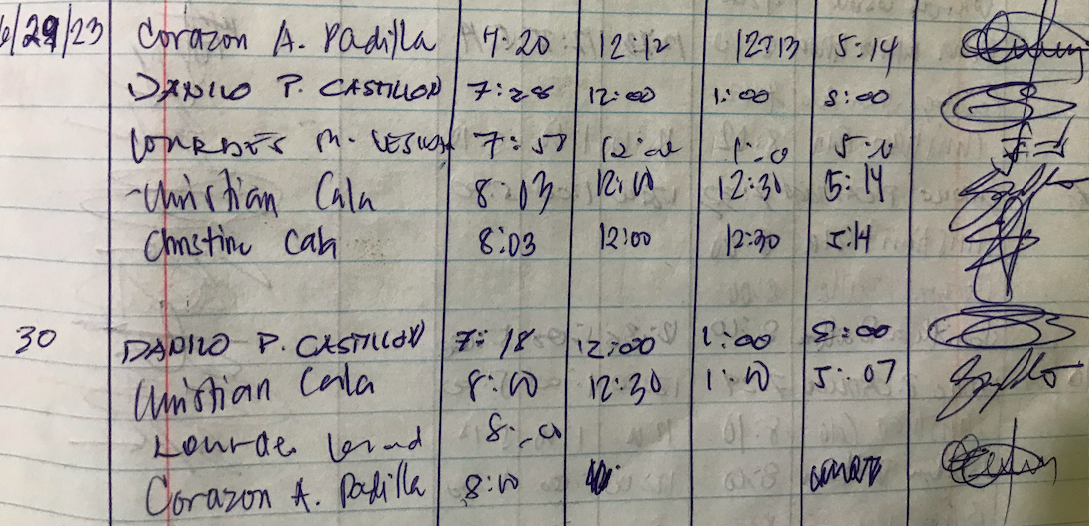 6/29/23 Corazon A. Padilla 7:20 12:12 12:13 5:14
DANILO P. CASTILLON 7:28 12:00 1:00 5:00
LOURDES M. 7:58 12:00 1:00 5:00
Christian Cala 8:03 12:00 12:30 5:14
Christine Cala 8:03 12:00 12:30 5:14
30 DANILO P. CASTILLON 7:18 12:00 1:00 5:00
Christian Cala 8:00 12:30 1:00 5:07
Lourdes 8:00
Corazon A. Padilla 8:00